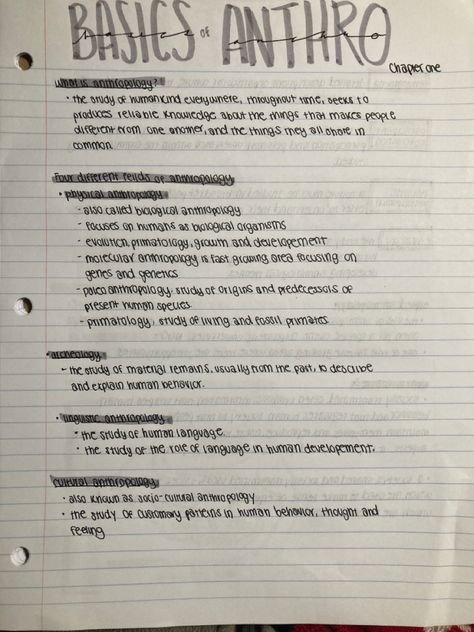 BASICS of ANTHRO
basics of anthro
Chapter one
What is anthropology?
• the study of humankind everywhere, throughout time, seeks to
produces reliable knowledge about the things that makes people
different from one another, and the things they all share in
common.
Four different feilds of anthropology
• physical anthropology
- also called biological anthropology
- focuses on humans as biological organisms
- evolution, primatology, growth and developement
- molecular anthropology is fast growing area focusing on
genes and genetics
- paleoanthropology, study of origins and predecessors of
present human species
- primatology, study of living and fossil primates
• archeology
- the study of material remains, usually from the past, to describe
and explain human behavior.
• linguistic anthropology
• the study of human language
• the study of the role of language in human developement.
cultural anthropology
• also known as socio-cultural anthropology
• the study of customary patterns in human behavior, thought and
feeling